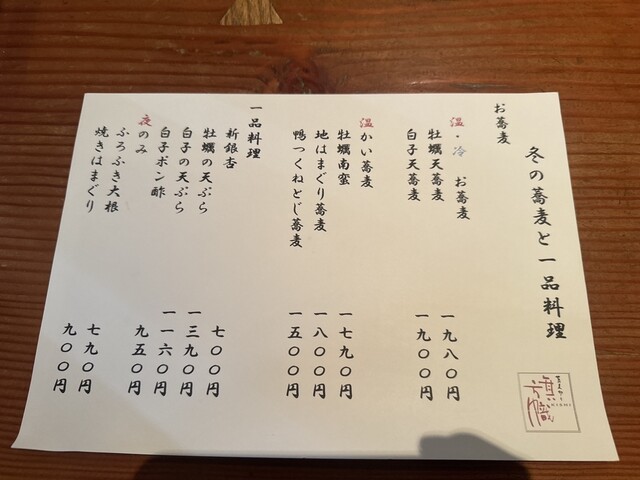 冬の蕎麦と一品料理
お蕎麦
温・冷 お蕎麦
牡蠣天蕎麦 一九八〇円
白子天蕎麦 一九〇〇円
温かい蕎麦
牡蠣南蛮 一七九〇円
地はまぐり蕎麦 一八〇〇円
鴨つくねとじ蕎麦 一五〇〇円
一品料理
新銀杏 七〇〇円
牡蠣の天ぷら 一三九〇円
白子の天ぷら 一一六〇円
白子ポン酢 九五〇円
夜のみ
ふろふき大根 七九〇円
焼きはまぐり 九〇〇円